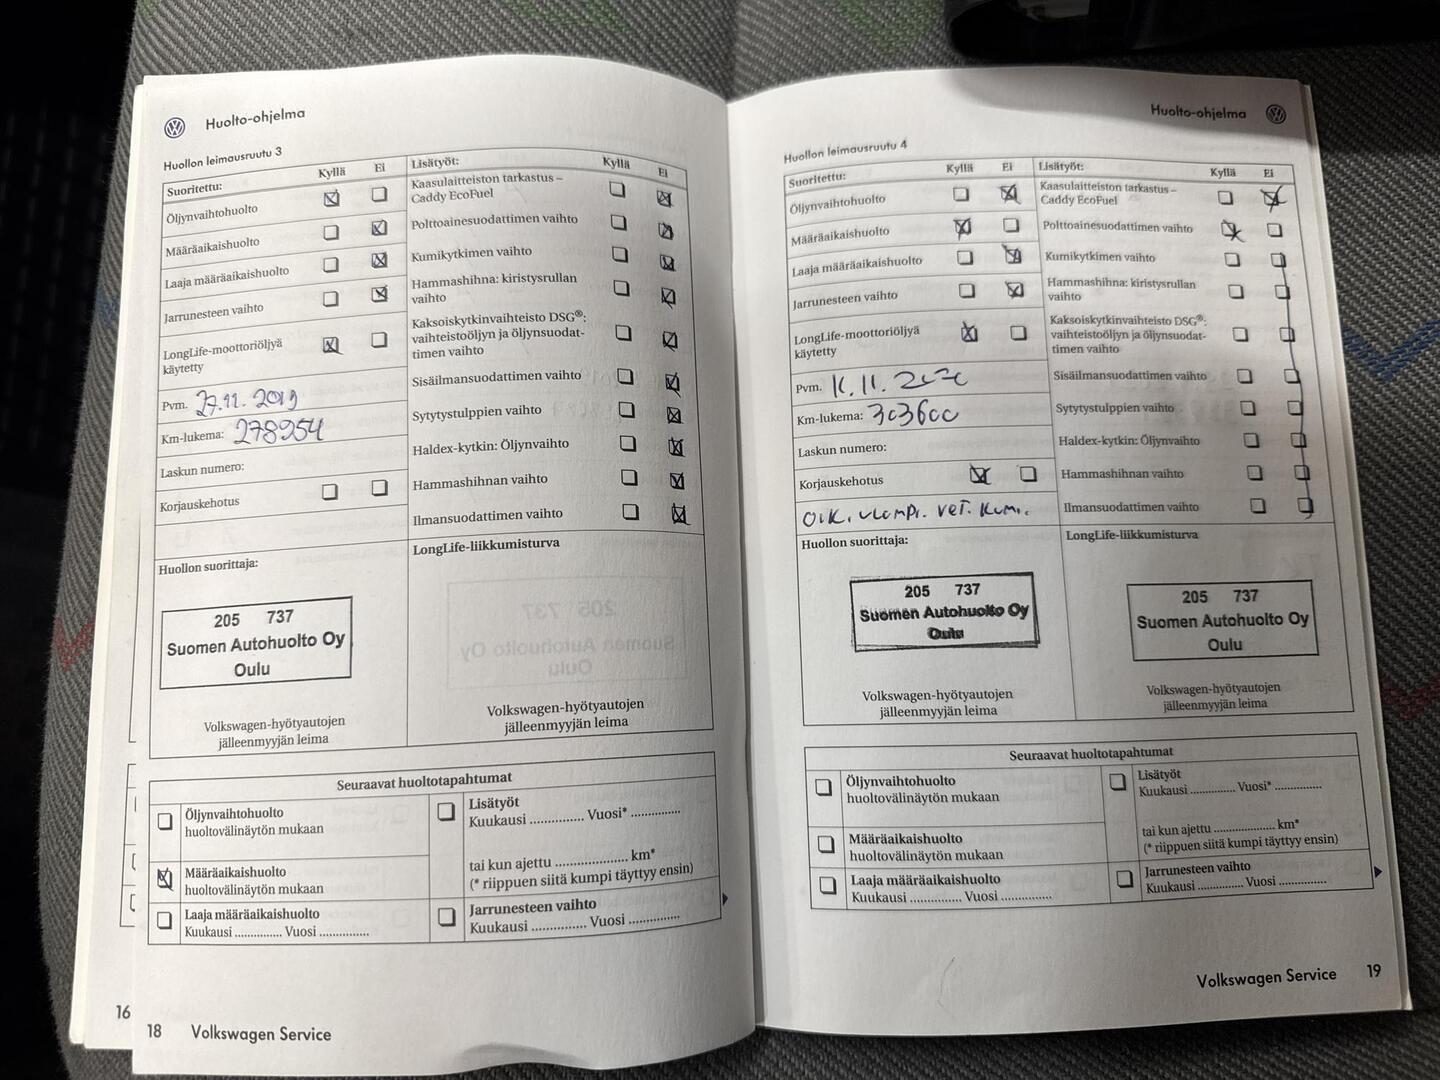 Huolto-ohjelma
Huollon leimausruutu 3
Suoritettu: Kyllä Ei
Öljynvaihtohuolto
Määräaikaishuolto
Laaja määräaikaishuolto
Jarrunesteen vaihto
LongLife-moottoriöljyä
käytetty
Pvm. 27.11. 2019
Km-lukema: 278954
Laskun numero:
Korjauskehotus
Lisätyöt: Kyllä Ei
Kaasulaitteiston tarkastus –
Caddy EcoFuel
Polttoainesuodattimen vaihto
Kumikytkimen vaihto
Hammashihna: kiristysrullan
vaihto
Kaksoiskytkinvaihteisto DSG®:
vaihteistoöljyn ja öljynsuodat-
timen vaihto
Sisäilmansuodattimen vaihto
Sytytystulppien vaihto
Haldex-kytkin: Öljynvaihto
Hammashihnan vaihto
Ilmansuodattimen vaihto
Huollon suorittaja:
205 737
Suomen Autohuolto Oy
Oulu
Volkswagen-hyötyautojen
jälleenmyyjän leima
LongLife-liikkumisturva
Volkswagen-hyötyautojen
jälleenmyyjän leima
Seuraavat huoltotapahtumat
Öljynvaihtohuolto
huoltovälinäytön mukaan
Määräaikaishuolto
huoltovälinäytön mukaan
Laaja määräaikaishuolto
Kuukausi ............... Vuosi ...............
Lisätyöt
Kuukausi ............... Vuosi* ...............
tai kun ajettu .................... km*
(* riippuen siitä kumpi täyttyy ensin)
Jarrunesteen vaihto
Kuukausi ............... Vuosi ...............
16
18 Volkswagen Service
Huolto-ohjelma
Huollon leimausruutu 4
Suoritettu: Kyllä Ei
Öljynvaihtohuolto
Määräaikaishuolto
Laaja määräaikaishuolto
Jarrunesteen vaihto
LongLife-moottoriöljyä
käytetty
Pvm. 11. 2020
Km-lukema: 303600
Laskun numero:
Korjauskehotus
Oik. vet. kumi.
Lisätyöt: Kyllä Ei
Kaasulaitteiston tarkastus –
Caddy EcoFuel
Polttoainesuodattimen vaihto
Kumikytkimen vaihto
Hammashihna: kiristysrullan
vaihto
Kaksoiskytkinvaihteisto DSG®:
vaihteistoöljyn ja öljynsuodat-
timen vaihto
Sisäilmansuodattimen vaihto
Sytytystulppien vaihto
Haldex-kytkin: Öljynvaihto
Hammashihnan vaihto
Ilmansuodattimen vaihto
Huollon suorittaja:
205 737
Suomen Autohuolto Oy
Oulu
Volkswagen-hyötyautojen
jälleenmyyjän leima
LongLife-liikkumisturva
205 737
Suomen Autohuolto Oy
Oulu
Volkswagen-hyötyautojen
jälleenmyyjän leima
Seuraavat huoltotapahtumat
Öljynvaihtohuolto
huoltovälinäytön mukaan
Määräaikaishuolto
huoltovälinäytön mukaan
Laaja määräaikaishuolto
Kuukausi ............... Vuosi ...............
Lisätyöt
Kuukausi ............... Vuosi* ...............
tai kun ajettu .................... km*
(* riippuen siitä kumpi täyttyy ensin)
Jarrunesteen vaihto
Kuukausi ............... Vuosi ...............
Volkswagen Service 19